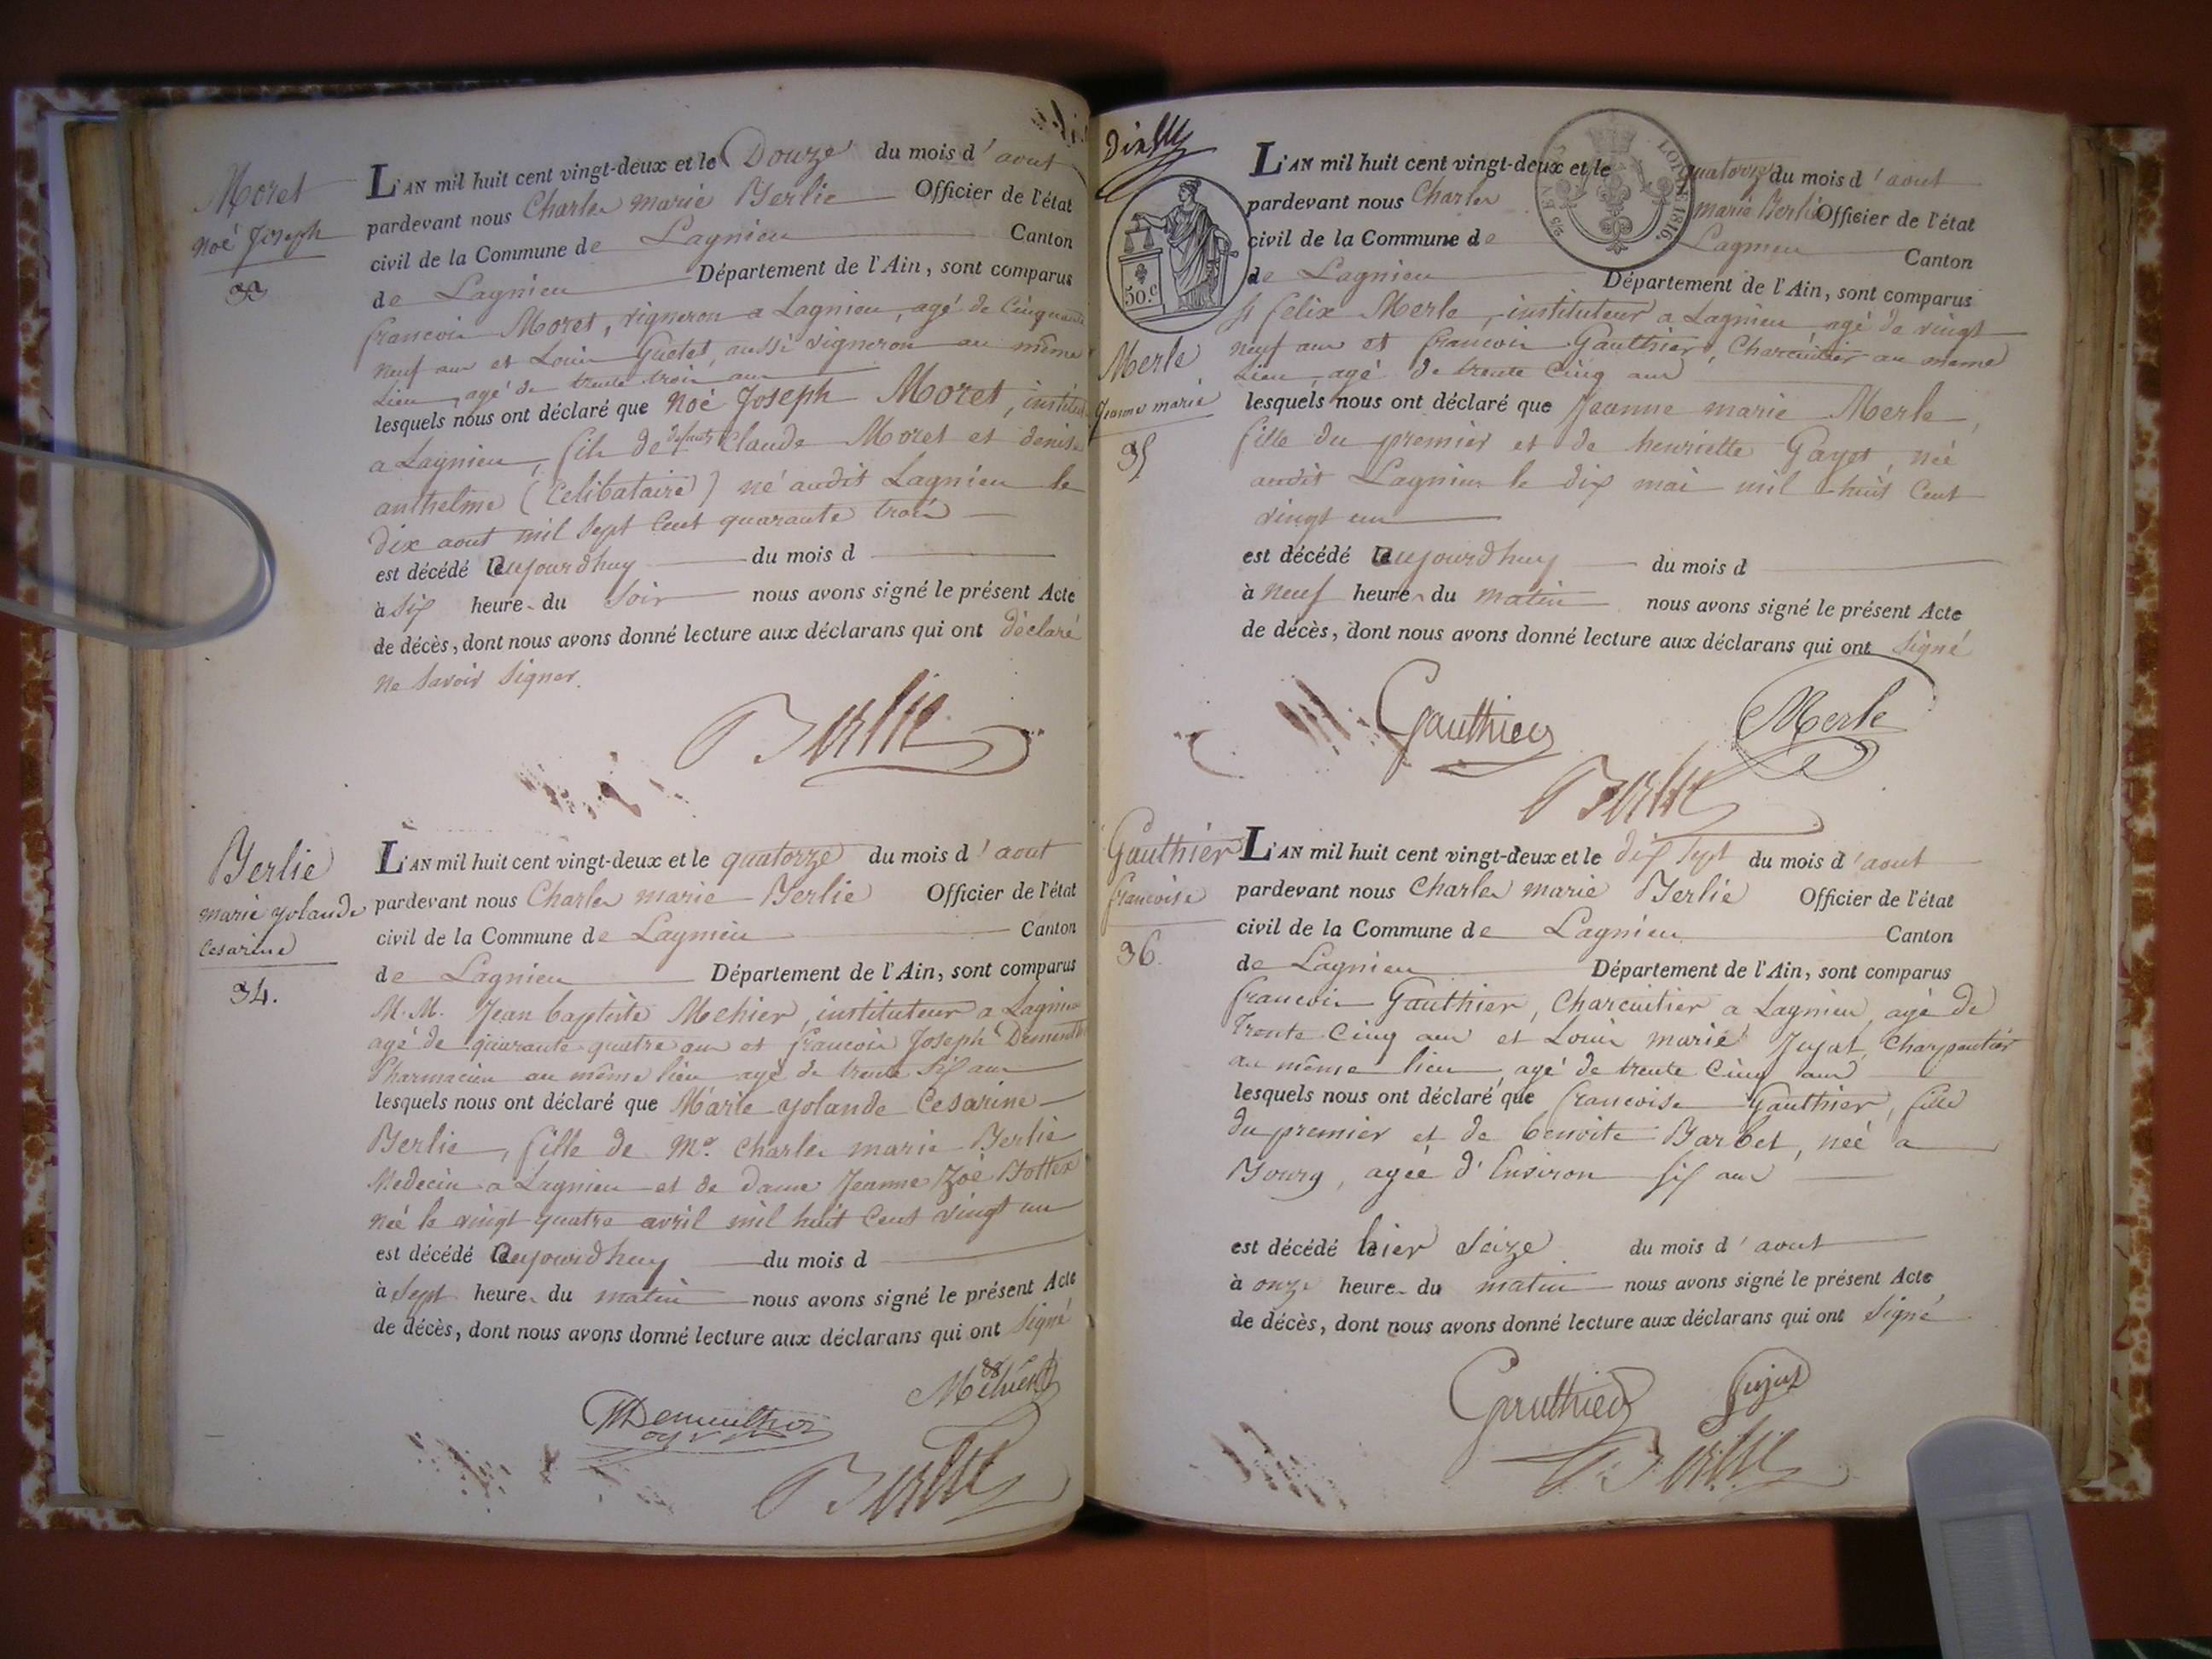 Moret
noé Joseph
33
L'AN mil huit cent vingt-deux et le Douze du mois d'aout
pardevant nous Charles marie Berlie Officier de l'état
civil de la Commune de Lagnieu Canton
de Lagnieu Département de l'Ain, sont comparus
francois Moret, vigneron a Lagnieu, agé de Cinquante
neuf ans et Louis Guetet, aussi vigneron au même
Lieu, agé de trente trois ans
lesquels nous ont déclaré que noé Joseph Moret,
a Lagnieu, fils de defunts Claude Moret et denise
anthelme (Celibataire) né audit Lagnieu le
dix aout mil sept Cent quarante trois
est décédé aujourdhuy du mois d
à Six heures du Soir nous avons signé le présent Acte
de décès, dont nous avons donné lecture aux déclarans qui ont déclaré
ne savoir signer.
Berlie
Berlie
marie yolande
Cesarine
34.
L'AN mil huit cent vingt-deux et le quatorze du mois d'aout
pardevant nous Charles marie Berlie Officier de l'état
civil de la Commune de Lagnieu Canton
de Lagnieu Département de l'Ain, sont comparus
M.M. Jean baptiste Mehier, instituteur a Lagnieu
agé de quarante quatre ans et francois Joseph
Pharmacien au même lieu agé de trente Six ans
lesquels nous ont déclaré que Marie yolande Cesarine
Berlie, fille de Mr. Charles marie Berlie
Medecin a Lagnieu et de dame Jeanne Zoé Bottex
née le vingt quatre avril mil huit Cent vingt un
est décédé aujourdhuy du mois d
à Sept heures du matin nous avons signé le présent Acte
de décès, dont nous avons donné lecture aux déclarans qui ont Signé
Mehier
Berlie
LOI DE 1816.
50.c
Merle
Jeanne marie
35
L'AN mil huit cent vingt-deux et le quatorze du mois d'aout
pardevant nous Charles marie Berlie Officier de l'état
civil de la Commune de Lagnieu Canton
de Lagnieu Département de l'Ain, sont comparus
Sr felix Merle, instituteur a Lagnieu agé de vingt
neuf ans et francois Gauthier, Charcuitier au même
Lieu, agé de trente Cinq ans
lesquels nous ont déclaré que Jeanne marie Merle,
fille du premier et de henriette Gayet, née
audit Lagnieu le dix mai mil huit Cent
vingt un
est décédé aujourdhuy du mois d
à neuf heures du matin nous avons signé le présent Acte
de décès, dont nous avons donné lecture aux déclarans qui ont Signé
Gauthier Merle
Berlie
Gauthier
francoise
36.
L'AN mil huit cent vingt-deux et le dix Sept du mois d'aout
pardevant nous Charles marie Berlie Officier de l'état
civil de la Commune de Lagnieu Canton
de Lagnieu Département de l'Ain, sont comparus
francois Gauthier, Charcuitier a Lagnieu, agé de
trente Cinq ans et Louis marie Jujat, Charpentier
au même lieu, agé de trente Cinq ans
lesquels nous ont déclaré que francoise Gauthier, fille
du premier et de benoite Barbet, née a
Bourg, agée d'Environ Six ans
est décédé hier Seize du mois d'aout
à onze heures du matin nous avons signé le présent Acte
de décès, dont nous avons donné lecture aux déclarans qui ont Signé
Gauthier Jujat
Berlie